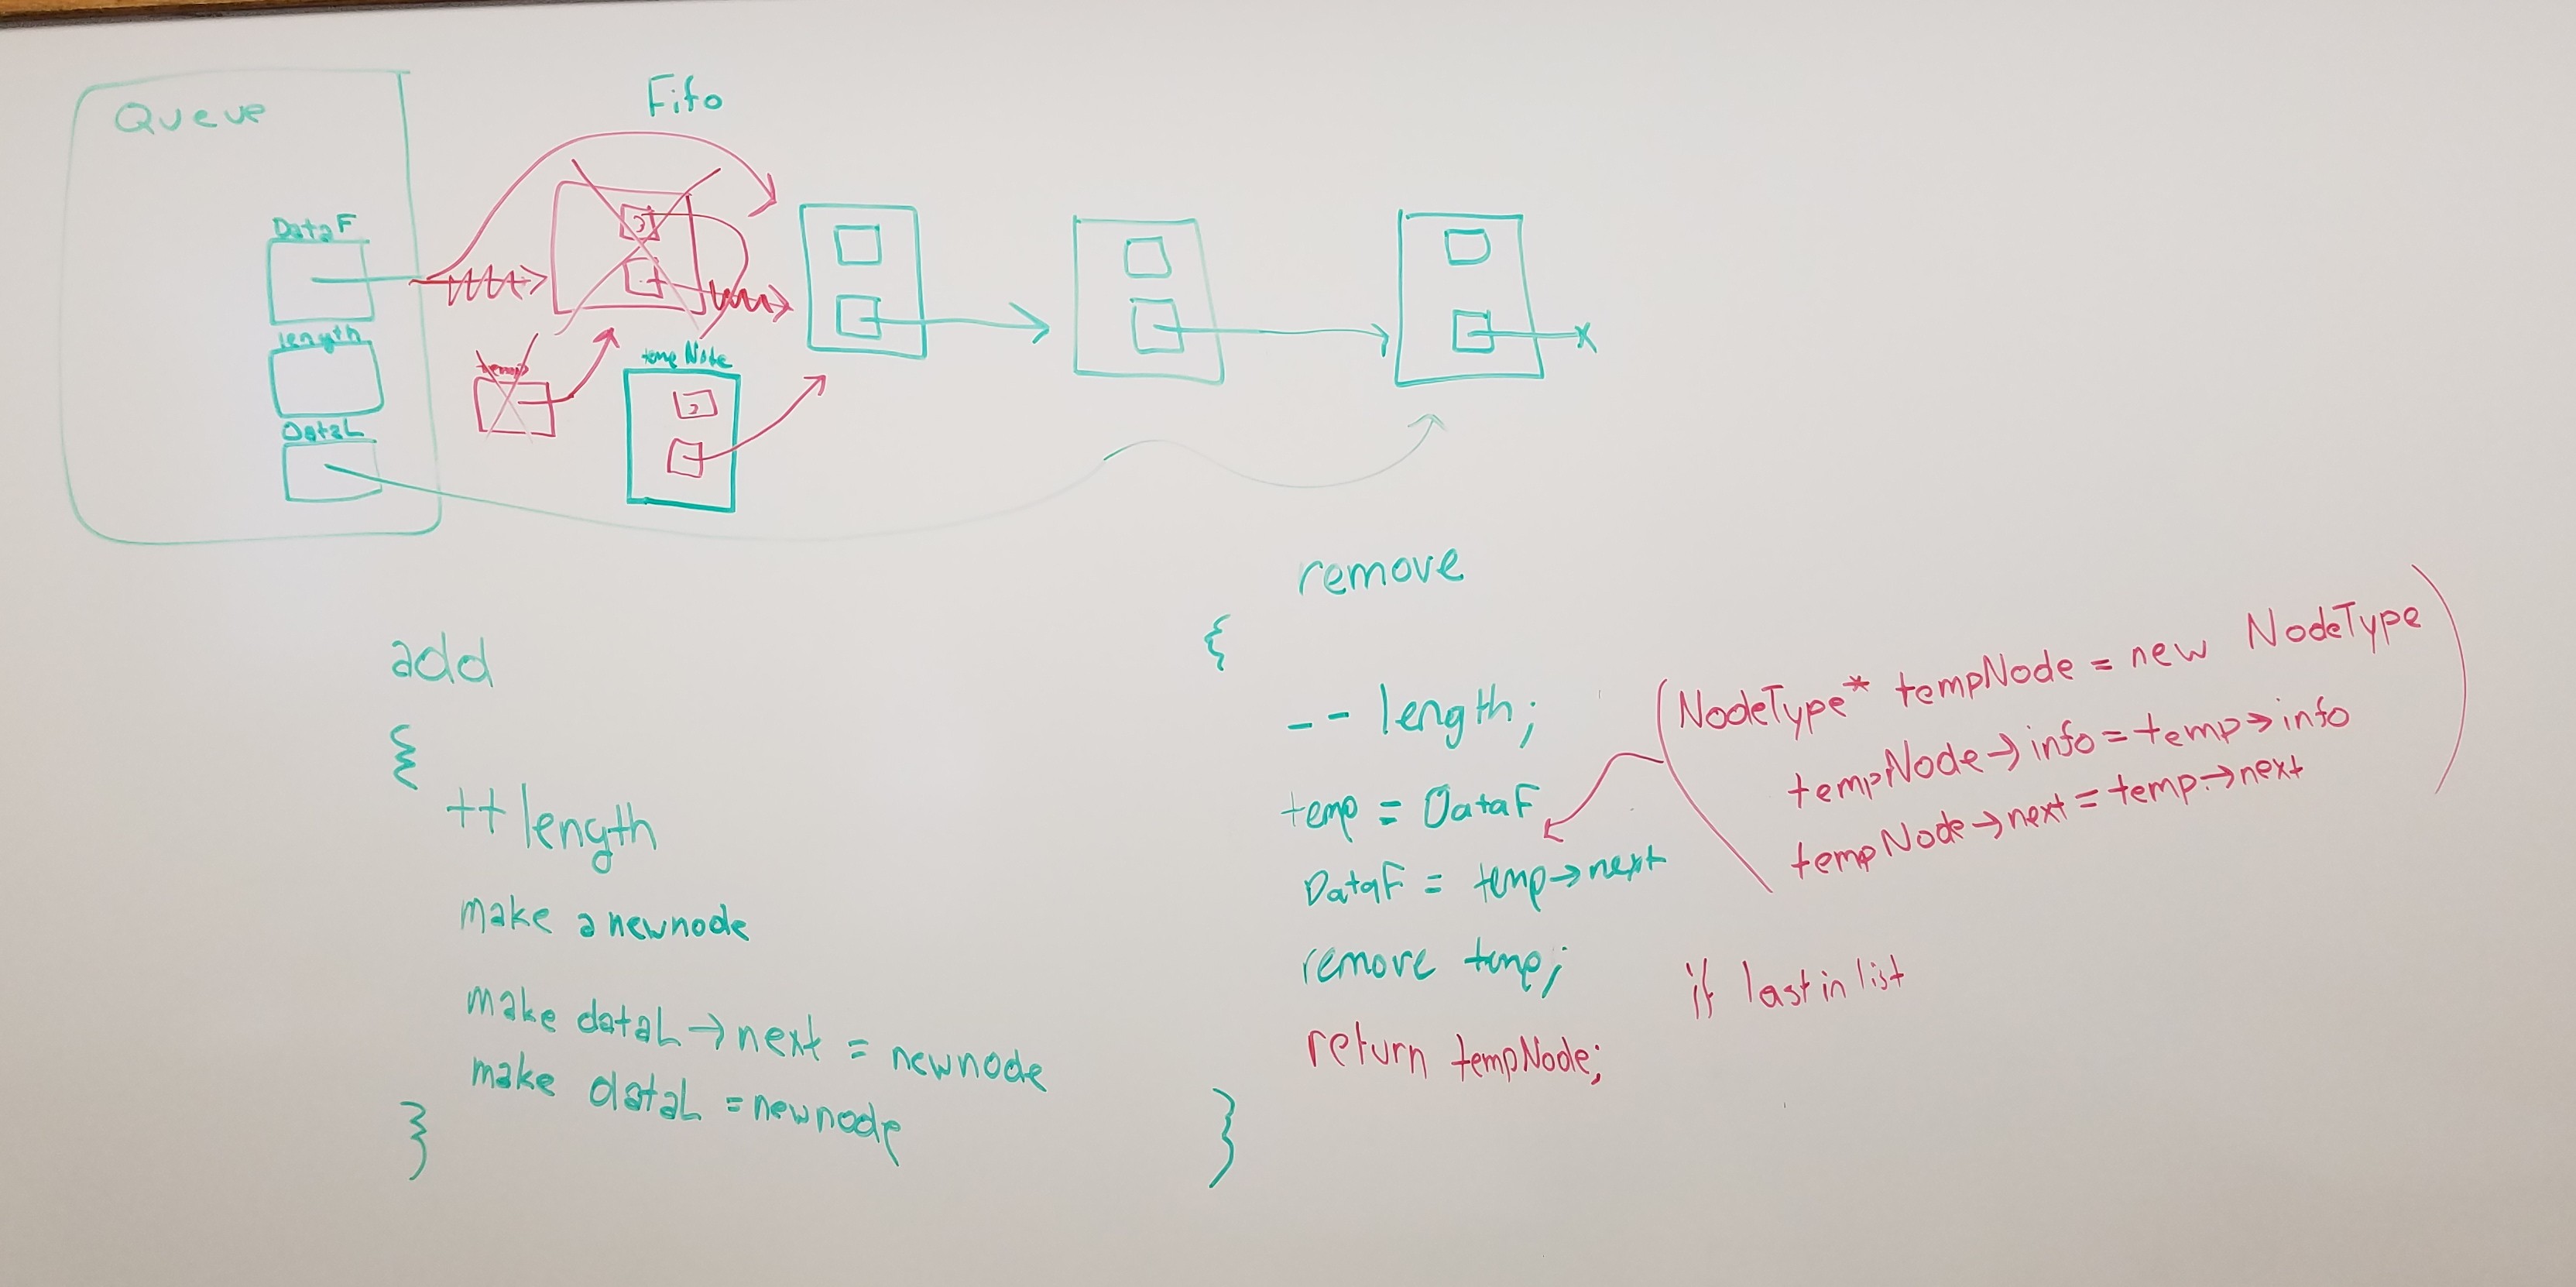 Queue
Fifo
DataF
length
DataL
temp
temp Node
add
{
++ length
make a newnode
make dataL → next = newnode
make dataL = newnode
}
remove
{
-- length;
temp = DataF
DataF = temp→next
remove temp;
return tempNode;
}
(NodeType* tempNode = new NodeType
tempNode→info = temp→info
tempNode→next = temp→next)
if last in list